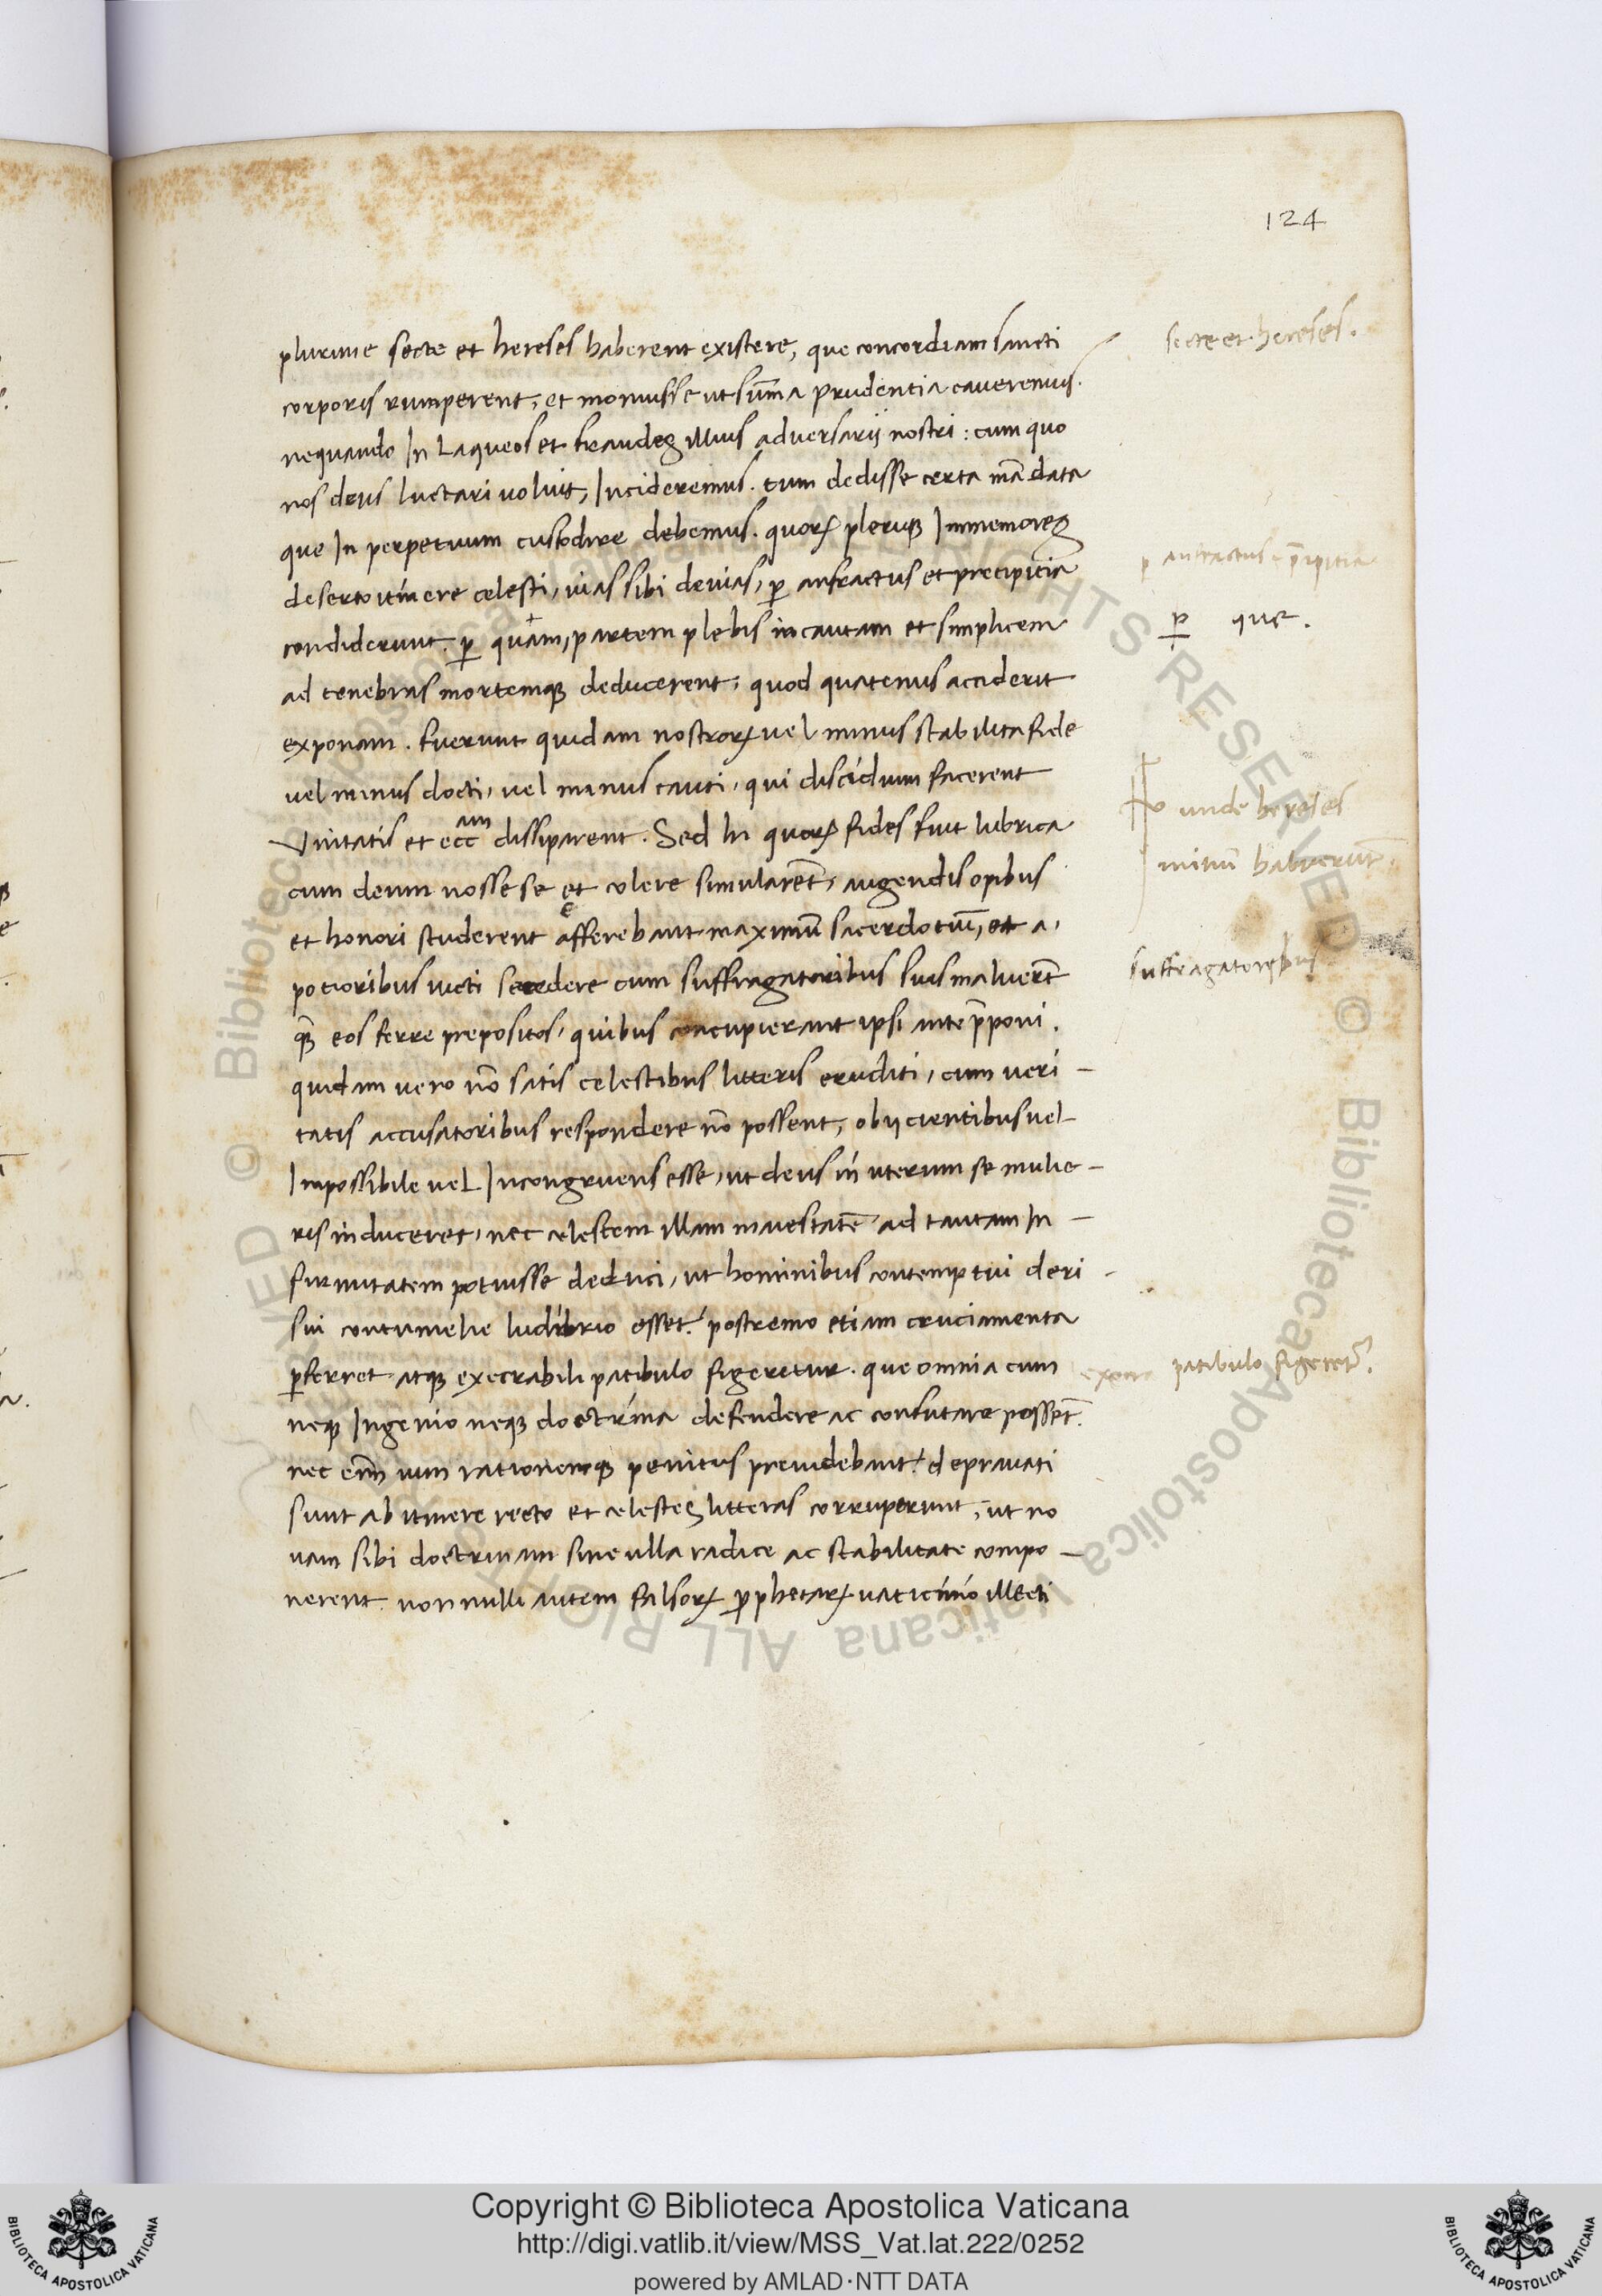 124
plurime secte et hereses haberent existere, que concordiam sancti
corporis rumperent, et monuisse ut sum̄a prudentia caveremus.
nequando In Laqueos et fraudes illius adversarij nostri: cum quo
nos deus luctari voluit, Incideremus. tum dedisse certa mādata
que In perpetuum custodire debemus. quoꝝ pleriqꝫ Immemores
deserto itinere celesti, vias sibi devias, ꝑ anfractus et precipitia
condiderunt. ꝑ quam, partem plebis incautam et simplicem
ad tenebras mortemqꝫ deducerent, quod quatenus acciderit
exponam. fuerunt quidam nostroꝝ vel minus stabilita fide
vel minus docti, vel minus cauti, qui discidium facerent
Unitatis et ecc^am dissiparent. Sed hi quoꝝ fides fuit lubrica
cum deum nosse se et colere simularēt, augendis opibus
et honori studerent afferebant maximū sacerdotiū, et a,
potioribus victi secedere cum suffragatoribus suis maluerūt
qꝫ̄ eos ferre prepositos, quibus concupierant ipsi ante p̄poni.
quidam vero nō satis celestibus litteris eruditi, cum veri-
tatis accusatoribus respondere nō possent, obijcientibus vel
Impossibile vel Incongruens esse, ut deus in uterum se mulie-
ris induceret, nec celestem illam maiestatē ad tantam In-
firmitatem potuisse deduci, ut hominibus contemptui deri-
sui contumelie ludibrio esset. postremo etiam cruciamenta
ꝑferret atqꝫ execrabili patibulo figeretur. que omnia cum
neqꝫ Ingenio neqꝫ doctrina defendere ac confutare possēt.
nec enī vim rationemqꝫ penitus previdebant, depravati
sunt ab itinere recto et celestes litteras corruperunt, ut no
vam sibi doctrinam sine ulla radice ac stabilitate compo-
nerent. non nulli autem falsoꝝ ꝓphetaꝝ vaticinio illecti
secte et hereses.
ꝑ anfractus p̄cipitia
ꝑ que.
unde hereses
initiū habuerūt.
suffragatoribus
patibulo figeret^r.
Copyright © Biblioteca Apostolica Vaticana
http://digi.vatlib.it/view/MSS_Vat.lat.222/0252
powered by AMLAD·NTT DATA
BIBLIOTECA APOSTOLICA VATICANA
BIBLIOTECA APOSTOLICA VATICANA
© Biblioteca Apostolica Vaticana ALL RIGHTS RESERVED © Biblioteca Apostolica Vaticana ALL RIGHTS RESERVED